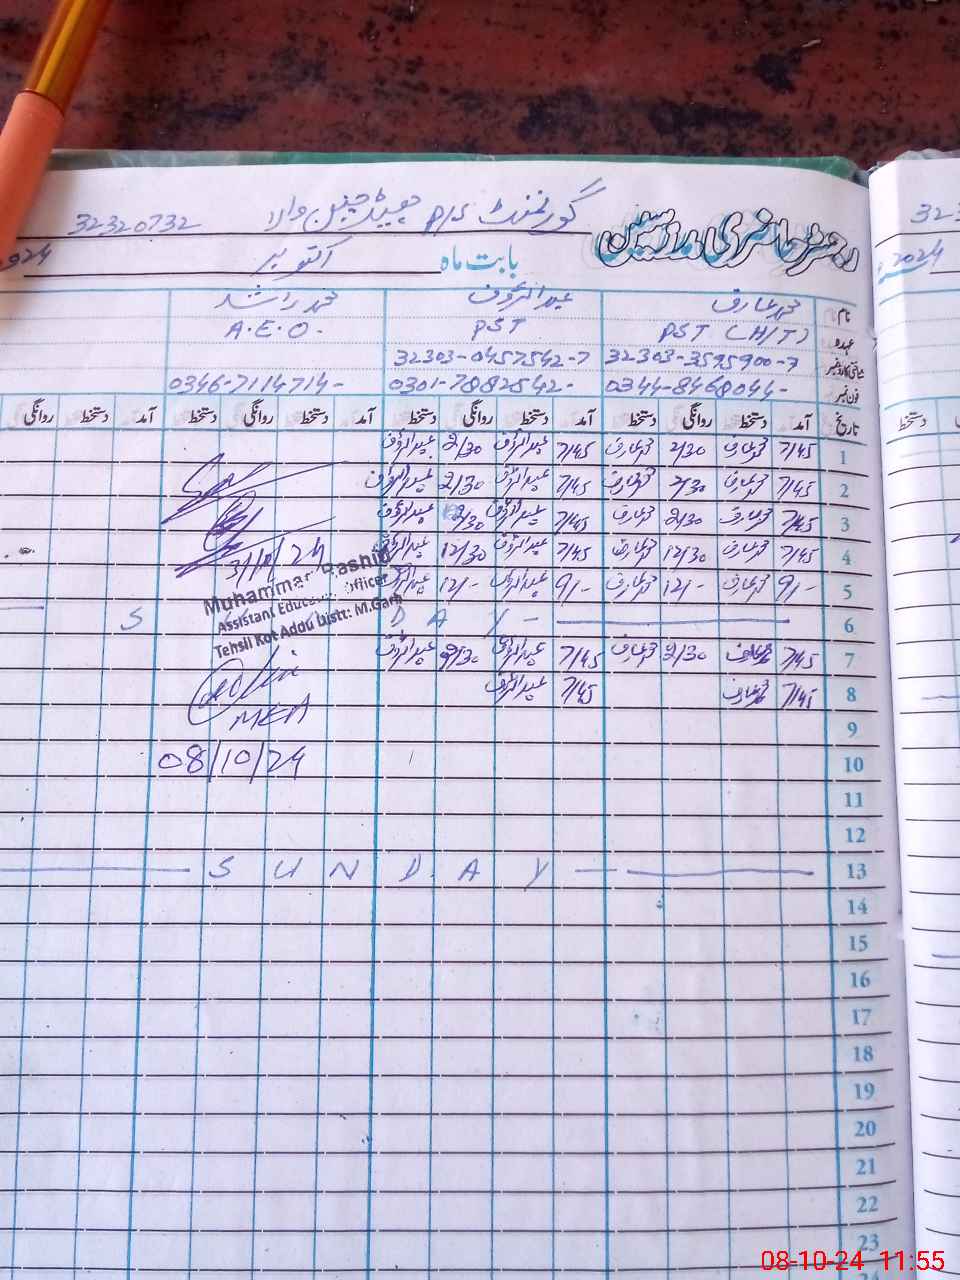 رجسٹر حاضری مدرسین گورنمنٹ P/S 32320732
بابت ماہ اکتوبر 2024
نام محمد عارف عبدالرؤف محمد راشد
عہدہ PST (H/T) PST A.E.O.
شناختی کارڈ نمبر 32303-3595900-7 32303-0457542-7
فون نمبر 0344-8468044- 0301-7882542- 0346-7114714-
تاریخ آمد دستخط روانگی دستخط آمد دستخط روانگی دستخط آمد دستخط روانگی دستخط آمد دستخط روانگی
1 7/45 محمد عارف 2/30 محمد عارف 7/45 عبدالرؤف 2/30 عبدالرؤف
2 7/45 محمد عارف 2/30 محمد عارف 7/45 عبدالرؤف 2/30 عبدالرؤف
3 7/45 محمد عارف 2/30 محمد عارف 7/45 عبدالرؤف 2/30 عبدالرؤف
4 7/45 محمد عارف 12/30 محمد عارف 7/45 عبدالرؤف 12/30 عبدالرؤف
5 9/- محمد عارف 12/- محمد عارف 9/- عبدالرؤف 12/- عبدالرؤف
Muhammad Rashid
Assistant Education Officer
Tehsil Kot Addu Distt: M.Garh
6 S D A Y
7 7/45 محمد عارف 2/30 محمد عارف 7/45 عبدالرؤف 2/30 عبدالرؤف
8 7/45 محمد عارف 7/45 عبدالرؤف
MEA
9
10 08/10/24
11
12
13 S U N D A Y
14
15
16
17
18
19
20
21
22
23
دستخط
2024
08-10-24 11:55